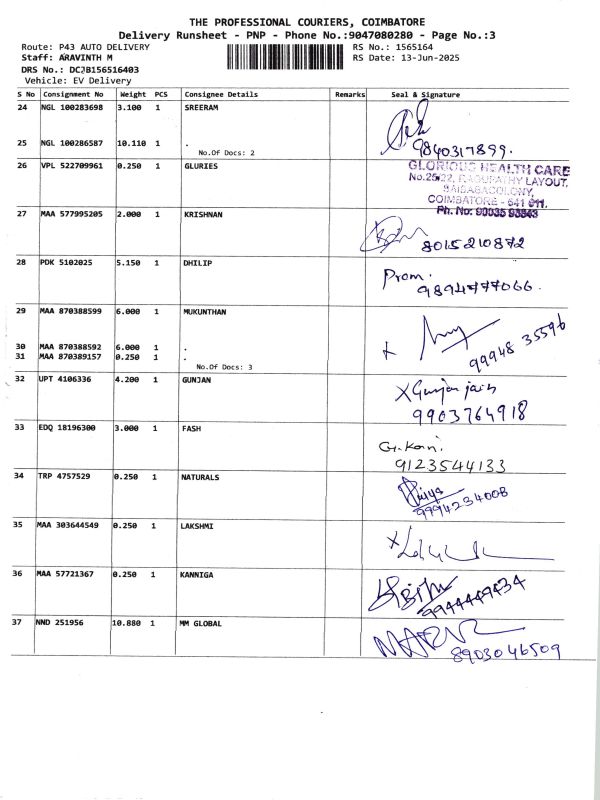 THE PROFESSIONAL COURIERS, COIMBATORE
Delivery Runsheet - PNP - Phone No.:9047080280 - Page No.:3
Route: P43 AUTO DELIVERY
RS No.: 1565164
Staff: ARAVINTH M
RS Date: 13-Jun-2025
DRS No.: DCJB156516403
Vehicle: EV Delivery
S No Consignment No Weight PCS Consignee Details Remarks Seal & Signature
24 NGL 100283698 3.100 1 SREERAM
25 NGL 100286587 10.110 1 .
9840317899.
No.Of Docs: 2
26 VPL 522709961 0.250 1 GLURIES
GLORIOUS HEALTH CARE
No.25/22, RAGUPATHY LAYOUT,
SAIBABACOLONY,
COIMBATORE - 641 011.
Ph. No: 90035 93843
27 MAA 577995205 2.000 1 KRISHNAN
8015210872
28 PDK 5102025 5.150 1 DHILIP
Prom.
9894777066.
29 MAA 870388599 6.000 1 MUKUNTHAN
99948 35596
30 MAA 870388592 6.000 1 .
31 MAA 870389157 0.250 1 .
No.Of Docs: 3
32 UPT 4106336 4.200 1 GUNJAN
X Gunjan jain
9903764918
33 EDQ 18196300 3.000 1 FASH
G.Kani.
9123544133
34 TRP 4757529 0.250 1 NATURALS
9994234008
35 MAA 303644549 0.250 1 LAKSHMI
36 MAA 57721367 0.250 1 KANNIGA
9944449434
37 NND 251956 10.880 1 MM GLOBAL
8903046509